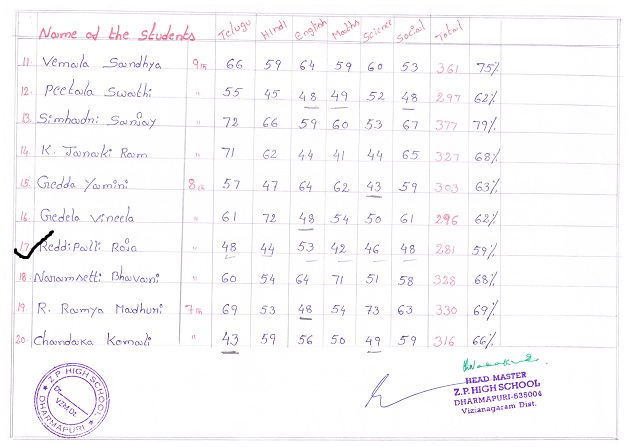 Name of the Students Telugu Hindi English Maths Science Social Total
11. Vemala Sandhya 9th 66 59 64 59 60 53 361 75%
12. Peetala Swathi " 55 45 48 49 52 48 297 62%
13. Simhadri Sanjay " 72 66 59 60 53 67 377 79%
14. K. Janaki Ram " 71 62 44 41 44 65 327 68%
15. Gedda Yamini 8th 57 47 64 62 43 59 303 63%
16. Gedela Vineela " 61 72 48 54 50 61 296 62%
17. Reddipalli Roja " 48 44 53 42 46 48 281 59%
18. Naramsetti Bhavani " 60 54 64 71 51 58 328 68%
19. R. Ramya Madhuri 7th 69 53 48 54 73 63 330 69%
20. Chandaka Kamali " 43 59 56 50 49 59 316 66%
Z.P. HIGH SCHOOL
Dt.
VZM Dt.
DHARMAPURI
HEAD MASTER
Z.P. HIGH SCHOOL
DHARMAPURI-535004
Vizianagaram Dist.